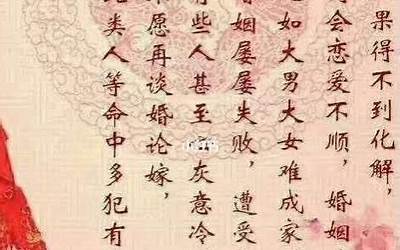 果得不到化解，
会恋爱不顺，婚姻
如大男大女难成家
婚姻屡屡失败，遭受
有些人甚至灰意冷
不愿再谈婚论嫁，
此类人等命中多犯有